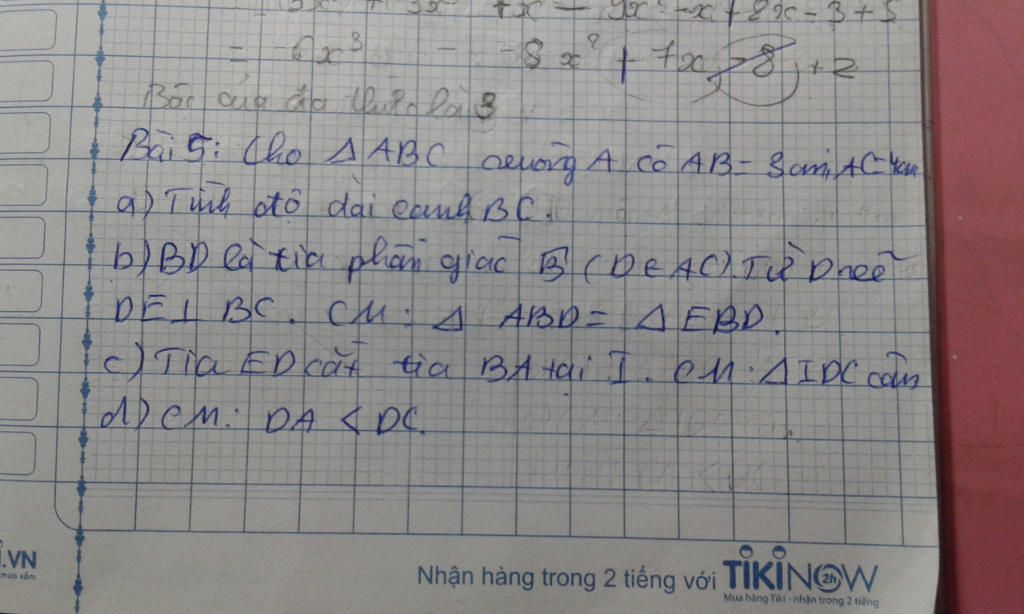 = -6x³ - 8x² + 7x - 8 + 2
Bậc của đa thức là 3
Bài 5: Cho △ABC vuông A có AB = 3cm, AC = 4cm
a) Tính độ dài cạnh BC.
b) BD là tia phân giác B̂ (D ∈ AC). Từ D kẻ
DE ⊥ BC. CM: △ ABD = △ EBD.
c) Tia ED cắt tia BA tại I. CM: △IDC cân
d) CM: DA < DC.
.VN
mua sắm
Nhận hàng trong 2 tiếng với TIKINOW 2h
Mua hàng Tiki - nhận trong 2 tiếng